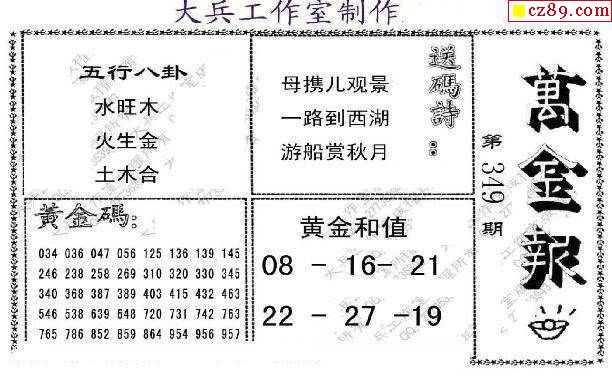 大兵工作室制作
cz89.com
五行八卦
水旺木
火生金
土木合
送碼詩：
母携儿观景
一路到西湖
游船赏秋月
萬金報
第349期
黃金碼：
034 036 047 056 125 136 139 145
246 238 258 269 310 320 330 345
340 368 387 389 403 415 432 463
546 538 639 648 720 731 742 763
765 786 852 859 864 954 956 957
黄金和值
08 - 16- 21
22 - 27 -19